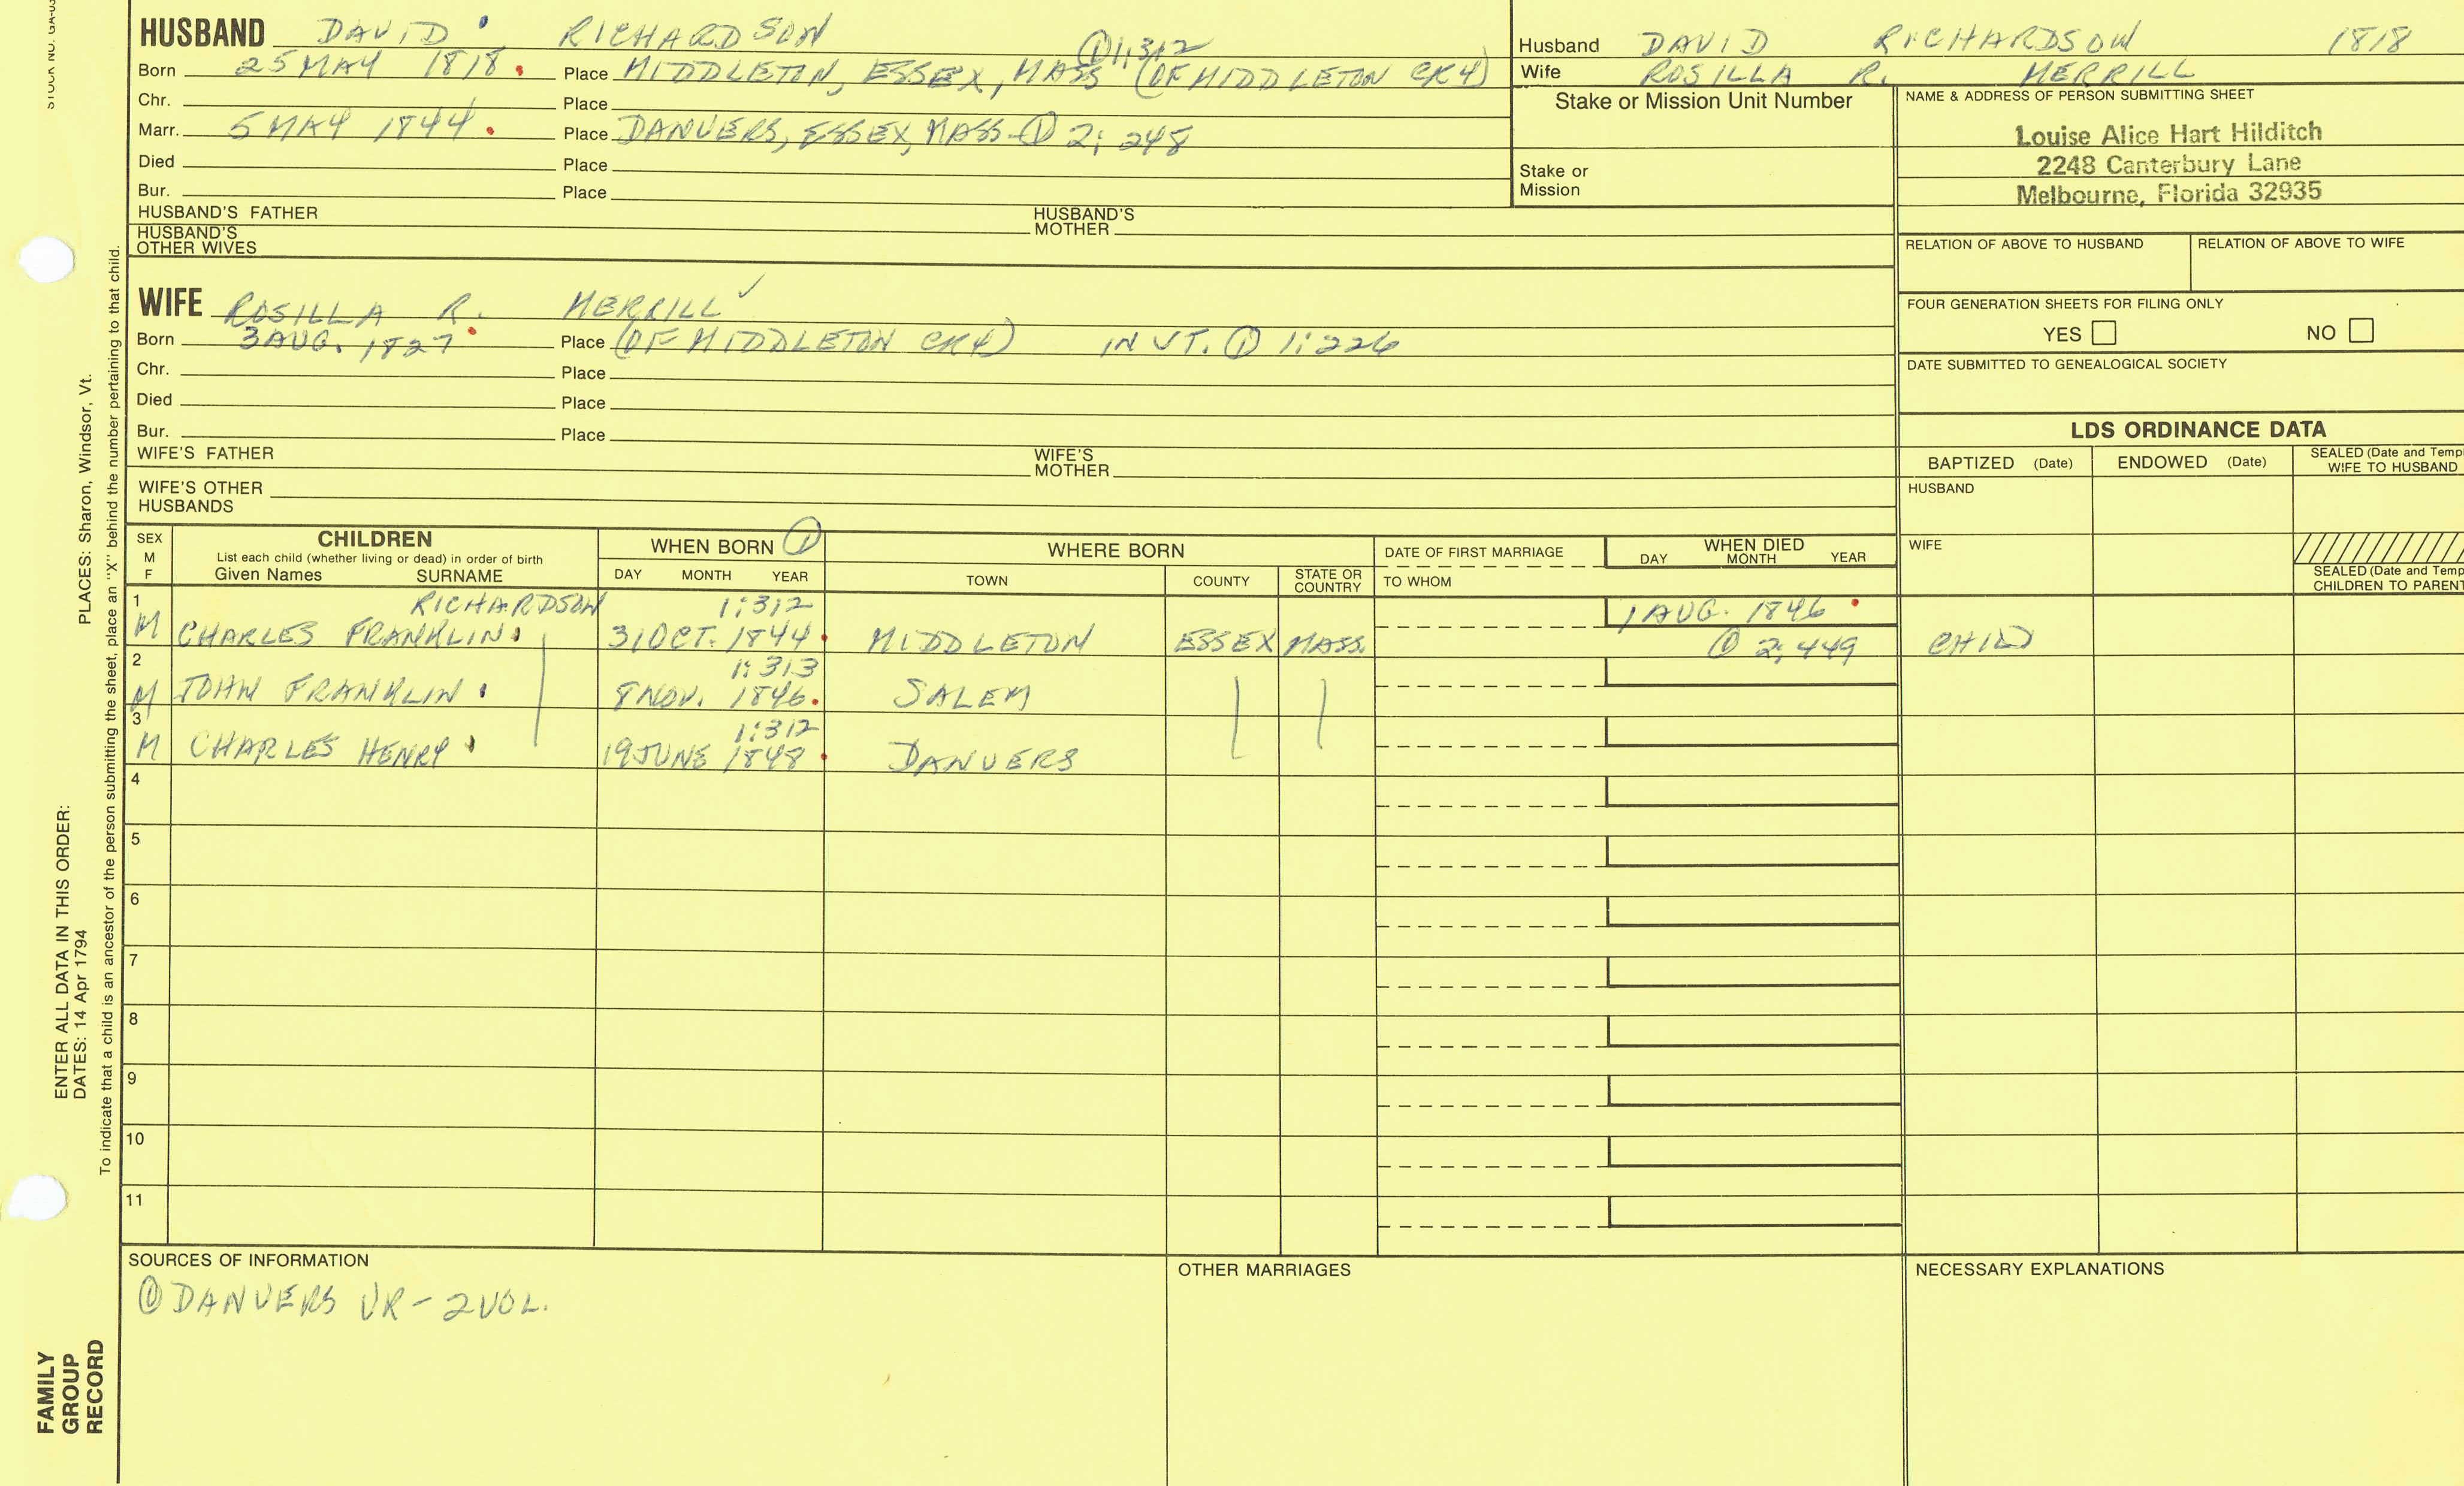 STOCK NO. GA-03
HUSBAND DAVID RICHARDSON
① 1:312
Born 25 MAY 1818. Place MIDDLETON, ESSEX, MASS (OF MIDDLETON CK4)
Chr. Place
Marr. 5 MAY 1844. Place DANVERS, ESSEX, MASS ① 2: 248
Died Place
Bur. Place
HUSBAND'S FATHER HUSBAND'S MOTHER
HUSBAND'S OTHER WIVES
Husband DAVID RICHARDSON 1818
Wife ROSILLA R. MERRILL
Stake or Mission Unit Number
Stake or Mission
NAME & ADDRESS OF PERSON SUBMITTING SHEET
Louise Alice Hart Hilditch
2248 Canterbury Lane
Melbourne, Florida 32935
RELATION OF ABOVE TO HUSBAND RELATION OF ABOVE TO WIFE
FOUR GENERATION SHEETS FOR FILING ONLY
YES NO
DATE SUBMITTED TO GENEALOGICAL SOCIETY
WIFE ROSILLA R. MERRILL ✓
Born 3 AUG. 1827 Place (OF MIDDLETON CK4) IN VT. ① 1:226
Chr. Place
Died Place
Bur. Place
WIFE'S FATHER WIFE'S MOTHER
WIFE'S OTHER HUSBANDS
LDS ORDINANCE DATA
BAPTIZED (Date) ENDOWED (Date) SEALED (Date and Temp
WIFE TO HUSBAND
HUSBAND
WIFE
SEALED (Date and Temp
CHILDREN TO PARENT
SEX M F CHILDREN WHEN BORN ① WHERE BORN DATE OF FIRST MARRIAGE WHEN DIED
List each child (whether living or dead) in order of birth
Given Names SURNAME DAY MONTH YEAR TOWN COUNTY STATE OR COUNTRY TO WHOM DAY MONTH YEAR
1 RICHARDSON 1:312 1 AUG. 1846
M CHARLES FRANKLIN 31 OCT. 1844. MIDDLETON ESSEX MASS. ① 2:449 CHILD
2 1:313
M JOHN FRANKLIN 8 NOV. 1846. SALEM
3 1:312
M CHARLES HENRY 19 JUNE 1848. DANVERS
4
5
6
7
8
9
10
11
SOURCES OF INFORMATION
① DANVERS VR - 2 VOL.
OTHER MARRIAGES
NECESSARY EXPLANATIONS
FAMILY
GROUP
RECORD
ENTER ALL DATA IN THIS ORDER:
DATES: 14 Apr 1794 PLACES: Sharon, Windsor, Vt.
To indicate that a child is an ancestor of the person submitting the sheet, place an "X" behind the number pertaining to that child.